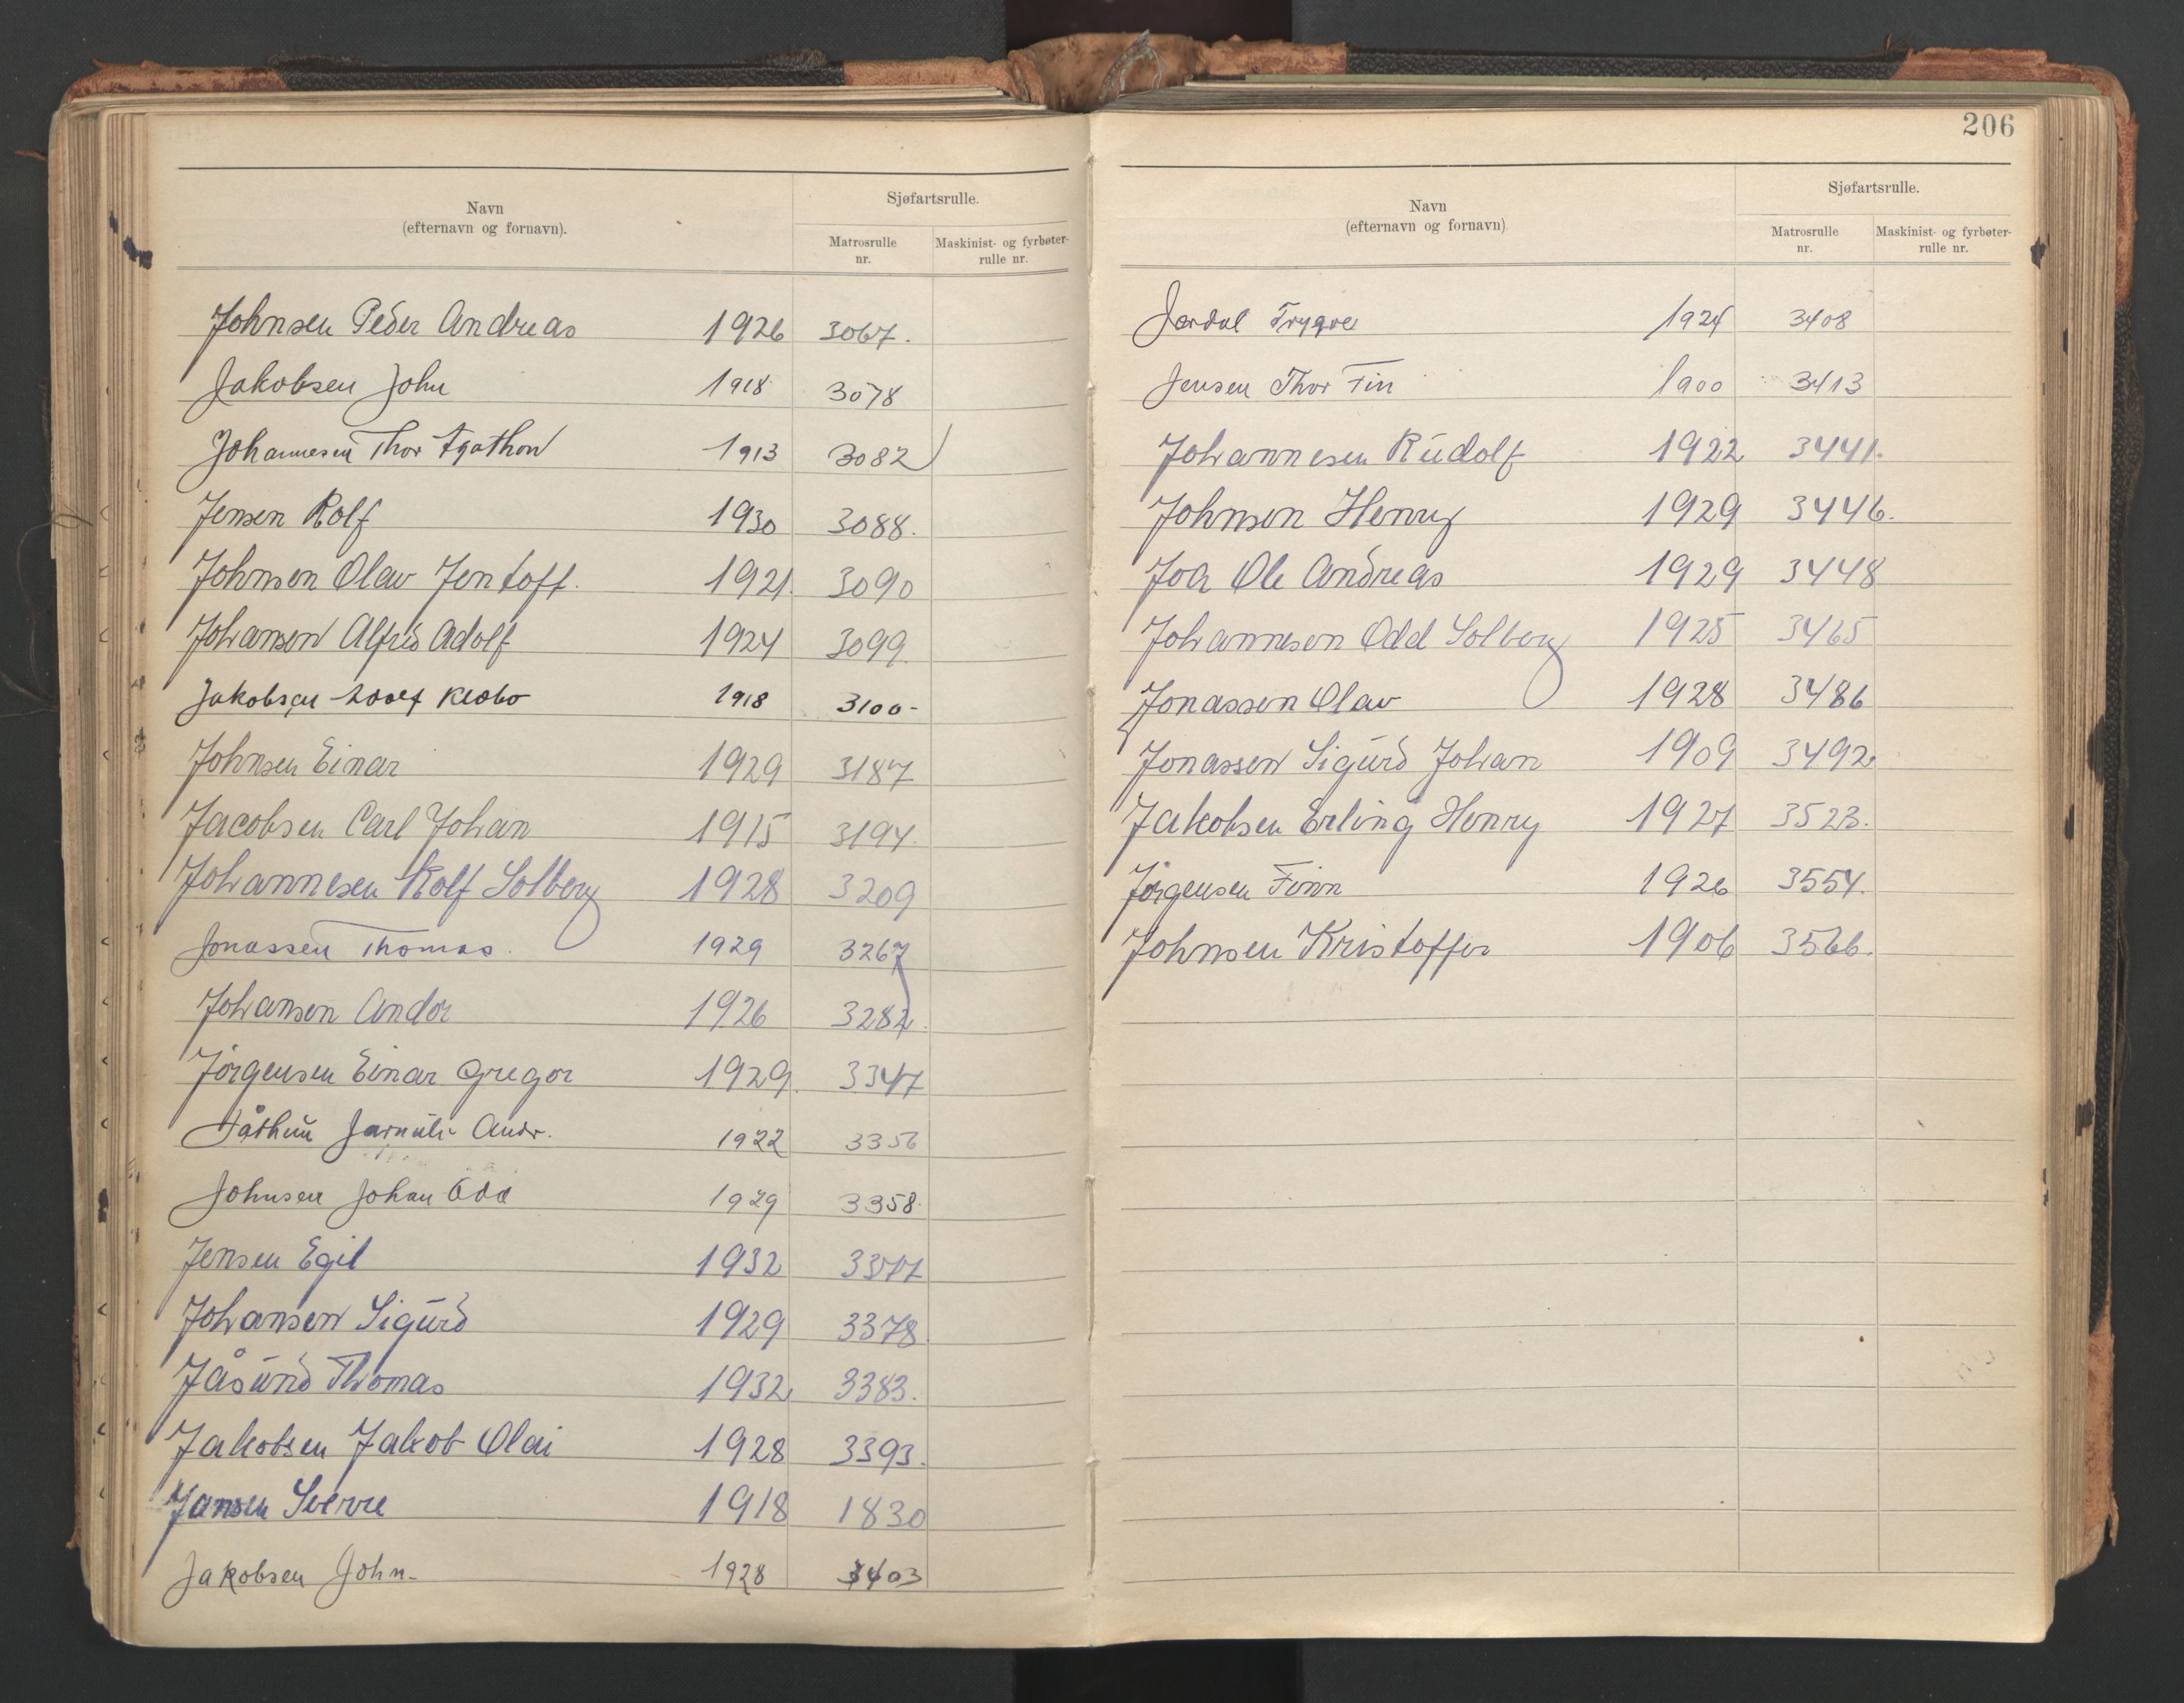 Navn
(efternavn og fornavn).
Sjøfartsrulle.
Matrosrulle nr.
Maskinist- og fyrbøter-rulle nr.
Johnsen Peder Andreas 1926 3067.
Jakobsen John 1918 3078
Johannesen Thor Agathon 1913 3082
Jensen Rolf 1930 3088.
Johnsen Olav Jentoft. 1921. 3090
Johansen Alfred Adolf 1924 3099.
Jakobsen Adolf Klobo 1918 3100-
Johnsen Einar 1929 3187
Jacobsen Carl Johan 1915 3194.
Johannesen Rolf Solberg 1928 3209
Jonassen Thomas. 1929 3267
Johansen Andor 1926 3282.
Jörgensen Einar Gregor 1929. 3347
Andr. 1922 3356
Johnsen Johan Odd 1929 3358.
Jensen Egil 1932 3377
Johansen Sigurd 1929 3378.
Jåsund Thomas 1932 3383.
Jakobsen Jakob Olai 1928 3393.
Jansen Sverre 1918 1830
Jakobsen John. 1928 3403
206
Navn
(efternavn og fornavn)
Sjøfartsrulle.
Matrosrulle nr.
Maskinist- og fyrbøter-rulle nr.
Jordal Trygve 1924 3408
Jensen Thor Fin 1900 3413
Johannesen Rudolf 1922 3441.
Johnsen Henry 1929 3446.
Joa Ole Andreas 1929 3448
Johannesen Odd Solberg 1925 3465
Jonassen Olav 1928 3486
Jonassen Sigurd Johan 1909 3492
Jakobsen Erling Henry 1927 3523.
Jörgensen Finn 1926 3554.
Johnsen Kristoffer 1906 3566.